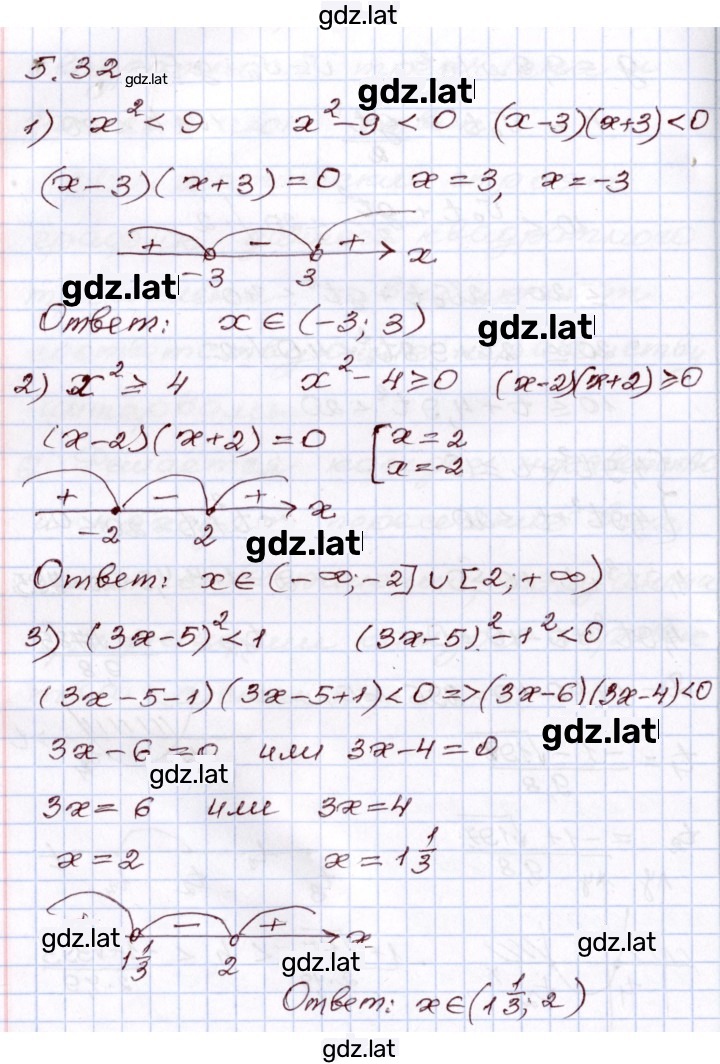 gdz.lat
5.32 gdz.lat
gdz.lat
1) x² < 9 x² – 9 < 0 (x–3)(x+3) < 0
(x–3)(x+3) = 0 x = 3, x = –3
+ – + x
–3 3
gdz.lat
Ответ: x ∈ (–3; 3) gdz.lat
2) x² ≥ 4 x² – 4 ≥ 0 (x–2)(x+2) ≥ 0
(x–2)(x+2) = 0 [ x = 2
x = –2
+ – + x
–2 2
gdz.lat
Ответ: x ∈ (–∞; –2] ∪ [2; +∞)
3) (3x–5)² < 1 (3x–5)² – 1² < 0
(3x–5–1)(3x–5+1) < 0 => (3x–6)(3x–4) < 0
gdz.lat
3x–6 = 0 или 3x–4 = 0
gdz.lat
3x = 6 или 3x = 4
x = 2 x = 1 1/3
+ – + x
gdz.lat gdz.lat
1 1/3 2 gdz.lat
Ответ: x ∈ (1 1/3; 2)
gdz.lat